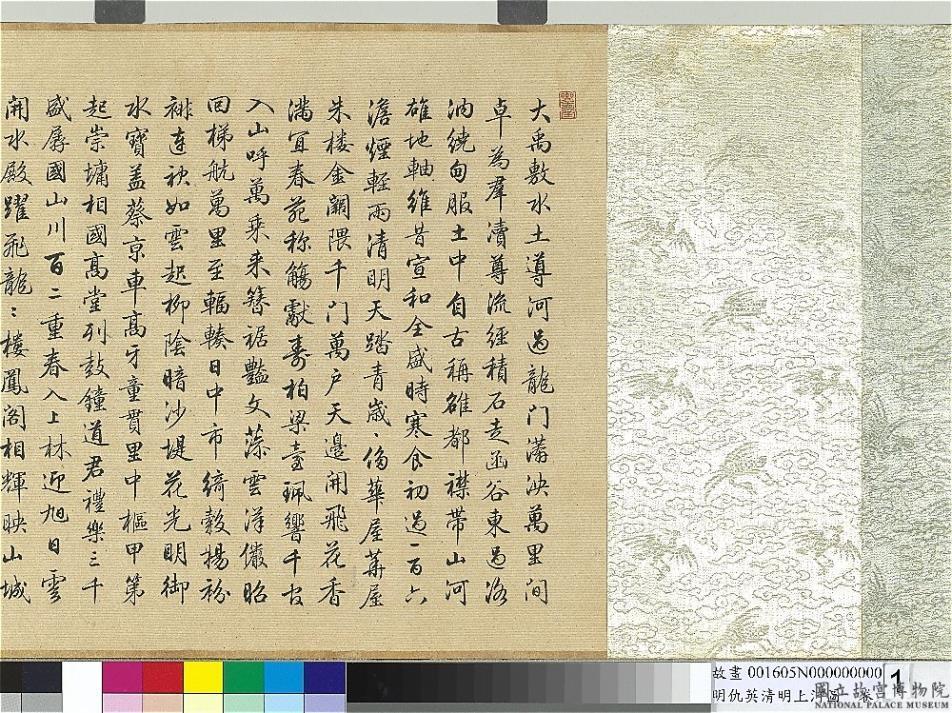 大禹敷水土導河過龍門瀰泱萬里間
卓為羣瀆尊流經積石走函谷東過洛
汭繞甸服土中自古稱雄都襟帶山河
雄地軸維昔宣和全盛時寒食初過一百六
澹煙輕雨清明天踏青歲〻侈華屋華屋
朱樓金闕隈千門萬戶天邊開飛花香
滿宜春苑称觴獻壽柏梁臺珮響千官
入山呼萬乘来簪裾豔文藻雲漢儼昭
回梯航萬里至輻輳日中市綺縠揚袿
連袂如雲起柳陰暗沙堤花光明御
水寶盖蔡京車高牙童貫里中樞甲第
起崇墉相國高堂列鼓鐘道君禮樂三千
盛孱國山川百二重春入上林迎旭日雲
開水殿躍飛龍〻樓鳳閣相輝映山城
故畫 001605N000000000
1
明仇英清明上河圖 卷
國立故宮博物院
NATIONAL PALACE MUSEUM